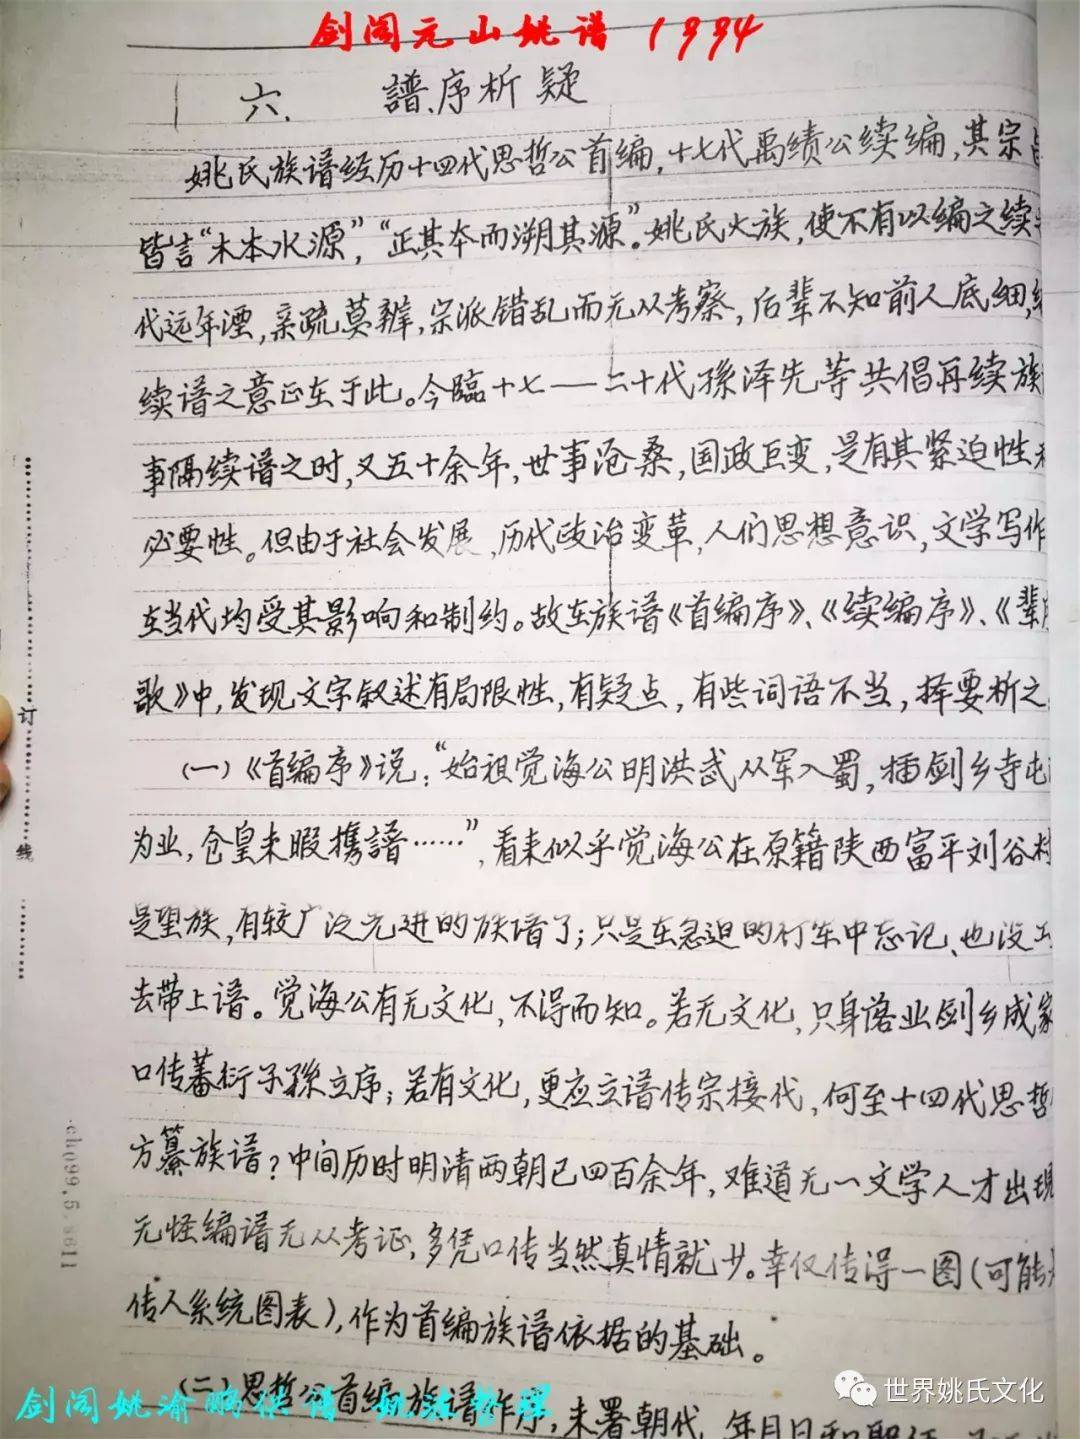 剑阁元山姚谱 1994
六、 譜序析疑
姚氏族谱经历十四代思哲公首编，十七代禹绩公续编，其宗
皆言“木本水源”，“正其本而溯其源”。姚氏火族，使不有以编之续
代远年湮，亲疏莫辨，宗派错乱而无从考察，后辈不知前人底细，
续谱之意正在于此。今臨十七——二十代孫泽先等共倡再续族
事隔续谱之时，又五十余年，世事沧桑，国政巨变，是有其紧迫性
必要性。但由于社会发展，历代政治变革，人们思想意识，文学写作
在当代均受其影响和制约。故在族谱《首编序》、《续编序》、《辈
歌》中，发现文字叙述有局限性，有疑点，有些词语不当，择要析之
（一）《首编序》说：“始祖觉海公明洪武从军入蜀，插剑乡寺屯
为业，仓皇未暇携譜……”，看来似乎觉海公在原籍陕西富平刘谷村
是望族，有较广泛先进的族谱了；只是在急迫的行军中忘记、也没
去带上谱。觉海公有无文化，不得而知。若无文化，只身落业剑乡成家
口传蕃衍子孫立序；若有文化，更应立谱传宗接代，何至十四代思哲
方纂族谱？中间历时明清两朝已四百余年，难道无一文学人才出现
无怪编谱无从考证，多凭口传当然真情就少。幸仅传得一图（可能
传人系统图表），作为首编族谱依据的基础。
（二）思哲公首编族谱作序，未署朝代、年月日和职
订
线
剑阁姚渝鹏供谱
世界姚氏文化